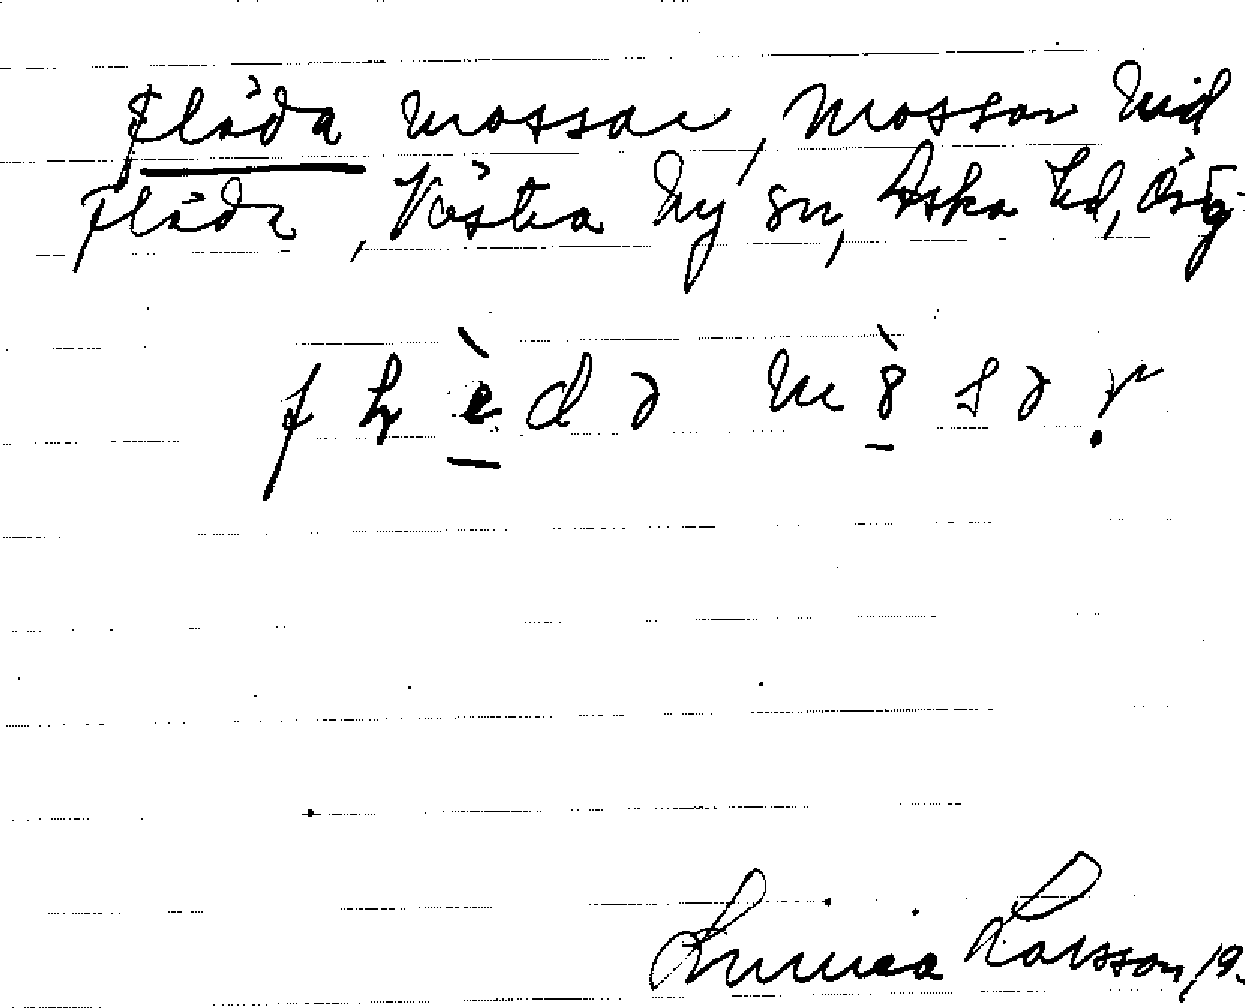 Fläda mossar, mossar vid
Fläda, Västra Ny sn, Aska hd, Östg
Linnea Larsson 19